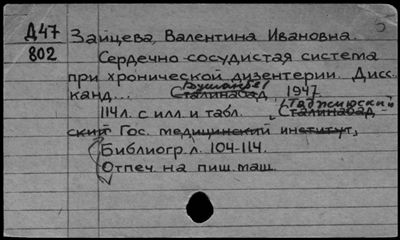 Д47
802
Зайцева, Валентина Ивановна.
Сердечно-сосудистая система
при хронической дизентерии. Дисс.
канд...
Душанбе
Сталинабад, 1947.
114 л. с илл. и табл. (Таджикский
Сталинабад-
ский Гос. медицинский институт,
Библиогр. л. 104-114.
Отпеч. на пиш. маш.